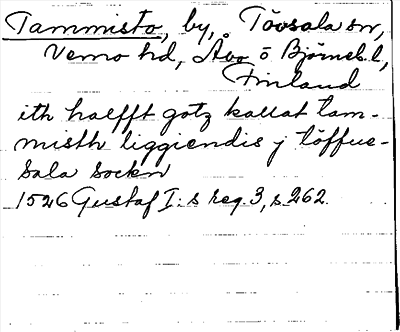 Tammisto, by, Tövsala sn,
Vemo hd, Åbo o Björneb. l,
Finland
ith halfft gotz kallat tam-
misth liggiendis j töffue-
sala sockn
1526 Gustaf I:s reg. 3, s. 262.